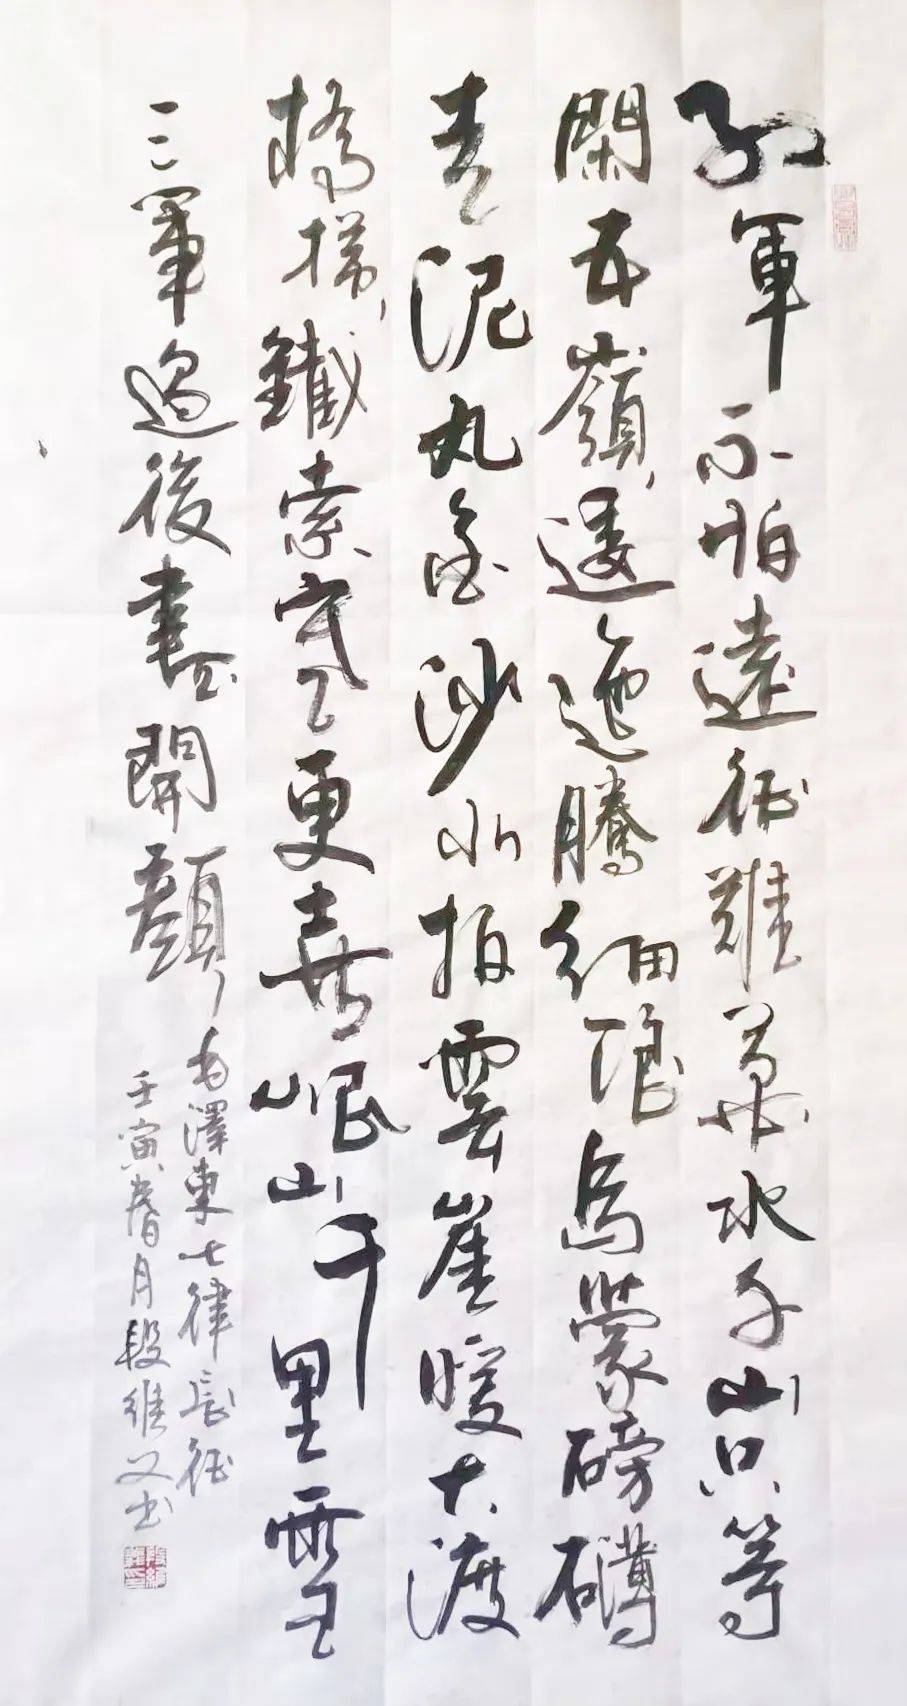 紅軍不怕遠征難萬水千山只等
閑五嶺逶迤騰細浪烏蒙磅礴
走泥丸金沙水拍雲崖暖大渡
橋横鐵索寒更喜岷山千里雪
三軍過後盡開顏
毛澤東七律長征
壬寅春月段維义书
段維義印